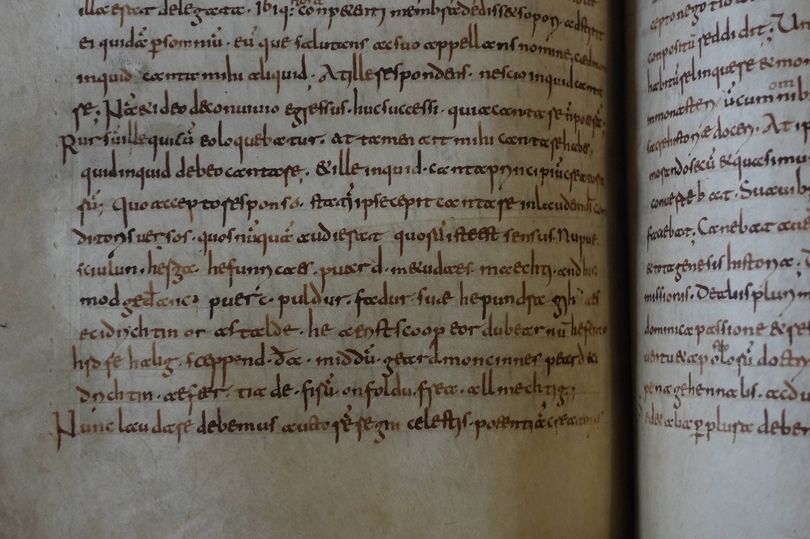 illa erat delegata. ibiq; conpetenti membra dedisset sopori. adstitit
ei quidā ꝑsomniū. eūque salutans ac suo appellans nomine, cædmon
inquid canta mihi aliquid. At ille respondens. nescio inquid canta
re; Nā & ideo deconuiuio egressus. huc successi. quia cantare n̄ poterā.
Rursū ille qui cū eo loquebatur. at tamen ait mihi cantare habes.
quid inquid debeo cantare, & ille inquid. canta principiū creatura
rū. Quo accepto responso. statī ipse cepit cantare in laudem dī con
ditoris uersos. quos nūquā audierat quorū iste est sensus. Nu pue
sciulun. hergæ. hefunricaes. puard. metudaes maechti. and his
mod geđanc. puerc. puldur. fadur. sue he pundra gih aes
eci drichtin or astalde. he aerist scoop eor du bearnū hefento
hrofe halig. sceppend. đa. middū. geard. moncinnes peard eci
drichtin. æfter. tia de. firū. on foldu. frea. allmechtig;
Nunc laudare debemus auctorē regni celestis. potentiā creatoris
cepto negotio
conpositū reddidit; Un
habitū relinquere & mon
monasteriū. ū cum omnib
sacre historiæ doceri. At ip
morando secū & quasi mun
conuertebat. Suauib
faciebat; Canebat aut
& tota genesis historia.
missionis. De aliis plurim
dominica passione & re
uentu & apostolorū doctri
pena gehennalis. ac du
deber